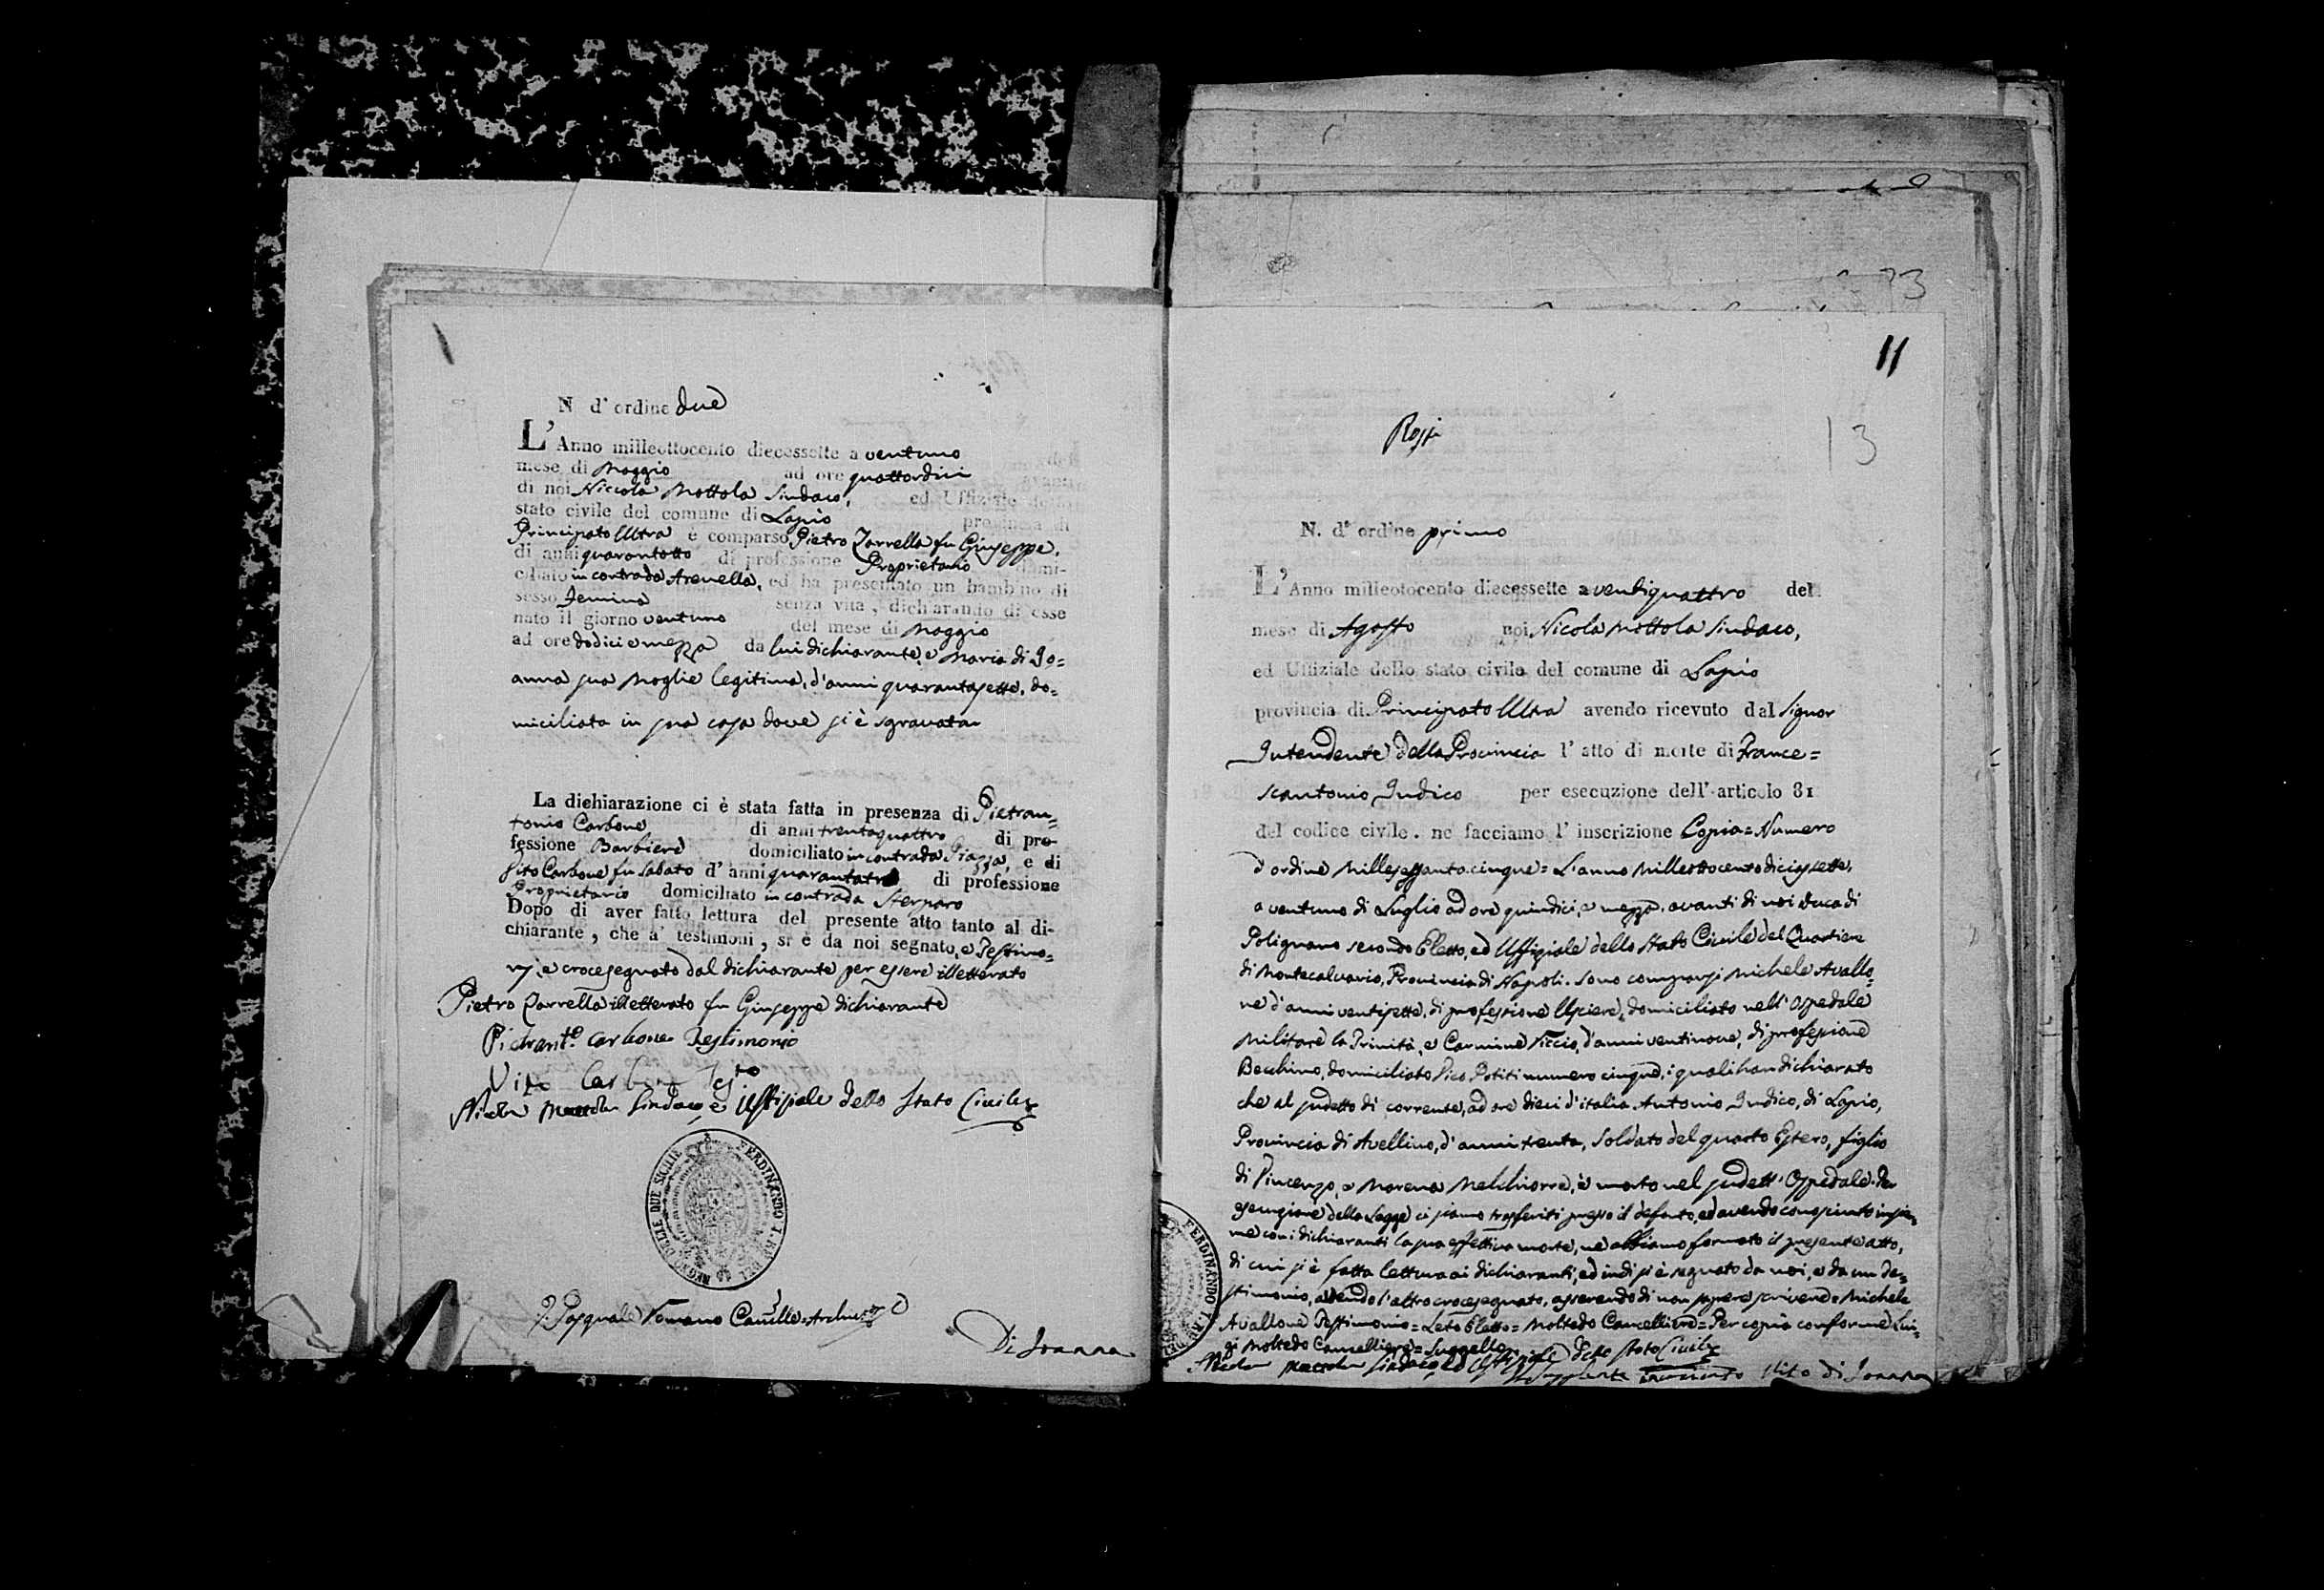 N d' ordine due
L'Anno milleottocento diecessette a ventuno
mese di Maggio ad ore quattordici
di noi Niccola Mottola Sindaco, ed Uffiziale dello
stato civile del comune di Lapio provincia di
Principato Ultra è comparso Pietro Zarrella fu Giuseppe,
di anni quarantotto di professione Proprietario domi-
ciliato in contrada Arenella, ed ha presentato un bambino di
sesso Femina senza vita, dichiarando di esse
nato il giorno ventuno del mese di Maggio
ad ore dodici e mezza da lui dichiarante, e Maria di Jo=
anna sua Moglie legitima, d'anni quarantasette, do=
miciliata in sua casa dove si è sgravata
La dichiarazione ci è stata fatta in presenza di Pietran=
tonio Carbone di anni trentaquattro di pro-
fessione Barbiere domiciliato in contrada Piazza, e di
Vito Carbone fu Sabato d' anni quarantatre di professione
Proprietario domiciliato in contrada Sterparo
Dopo di aver fatto lettura del presente atto tanto al di-
chiarante, che a' testimoni, si è da noi segnato, e Testimo=
nj, e crocesegnato dal dichiarante per essere illetterato
Pietro Zarrella illetterato fu Giuseppe dichiarante
Pietrant.o Carbone Testimonio
Vito Carbone Test.o
Nicola Mottola Sindaco, e Uffiziale dello Stato Civile
REGNO DELLE DUE SICILIE FERDINANDO I. RE DEL
Pasquale Romano
Di Joanna
11
13
Rossi
N. d' ordine primo
L'Anno milleotocento diecessette a ventiquattro del
mese di Agosto noi Nicola Mottola Sindaco,
ed Uffiziale dello stato civile del comune di Lapio
provincia di Principato Ultra avendo ricevuto dal Signor
Intendente della Provincia l' atto di morte di France=
scantonio Judico per esecuzione dell' articolo 81
del codice civile. ne facciamo l' inscrizione Copia=Numero
d'ordine Millesessantacinque= L'anno Milleottocentodiciessette,
a ventuno di Luglio ad ore quindici, e mezza. avanti di noi Duca di
Polignano secondo Eletto, ed Uffiziale dello Stato Civile del Quartiere
di Montecalvario, Provincia di Napoli. sono comparsi Michele Avallo=
ne d'anni ventisette, di professione Usciere, domiciliato nell'Ospedale
Militare la Trinità, e Carmine Riccio, d'anni ventinove, di professione
Becchino, domiciliato Vico Potiti numero cinque, i quali han dichiarato
che al sudetto di corrente, ad ore dieci d'italia Antonio Judico, di Lapio,
Provincia di Avellino, d'anni trenta, Soldato del quarto Estero, figlio
di Vincenzo, e Morena Melchiorra, è morto nel sudett' Ospedale. Per
esecuzione della Legge ci siamo trasferiti presso il defonto, ed avendo conosciuto insie=
me con i dichiaranti la sua effettiva morte, ne abbiamo formato il presente atto,
di cui si è fatta lettura ai dichiaranti, ed indi si è segnato da noi, e da un Te=
stimonio, avendo l'altro crocesegnato, asserendo di non sapere scrivere= Michele
Avallone Testimonio= Leto Eletto= Moltedo Cancelliere= Per copia conforme Lui=
gi Moltedo Cancelliere= Suggello.
Nicola Mottola Sindaco, ed Uffiziale dello Stato Civile
Vito di Joanna
FERDINANDO I. RE DEL